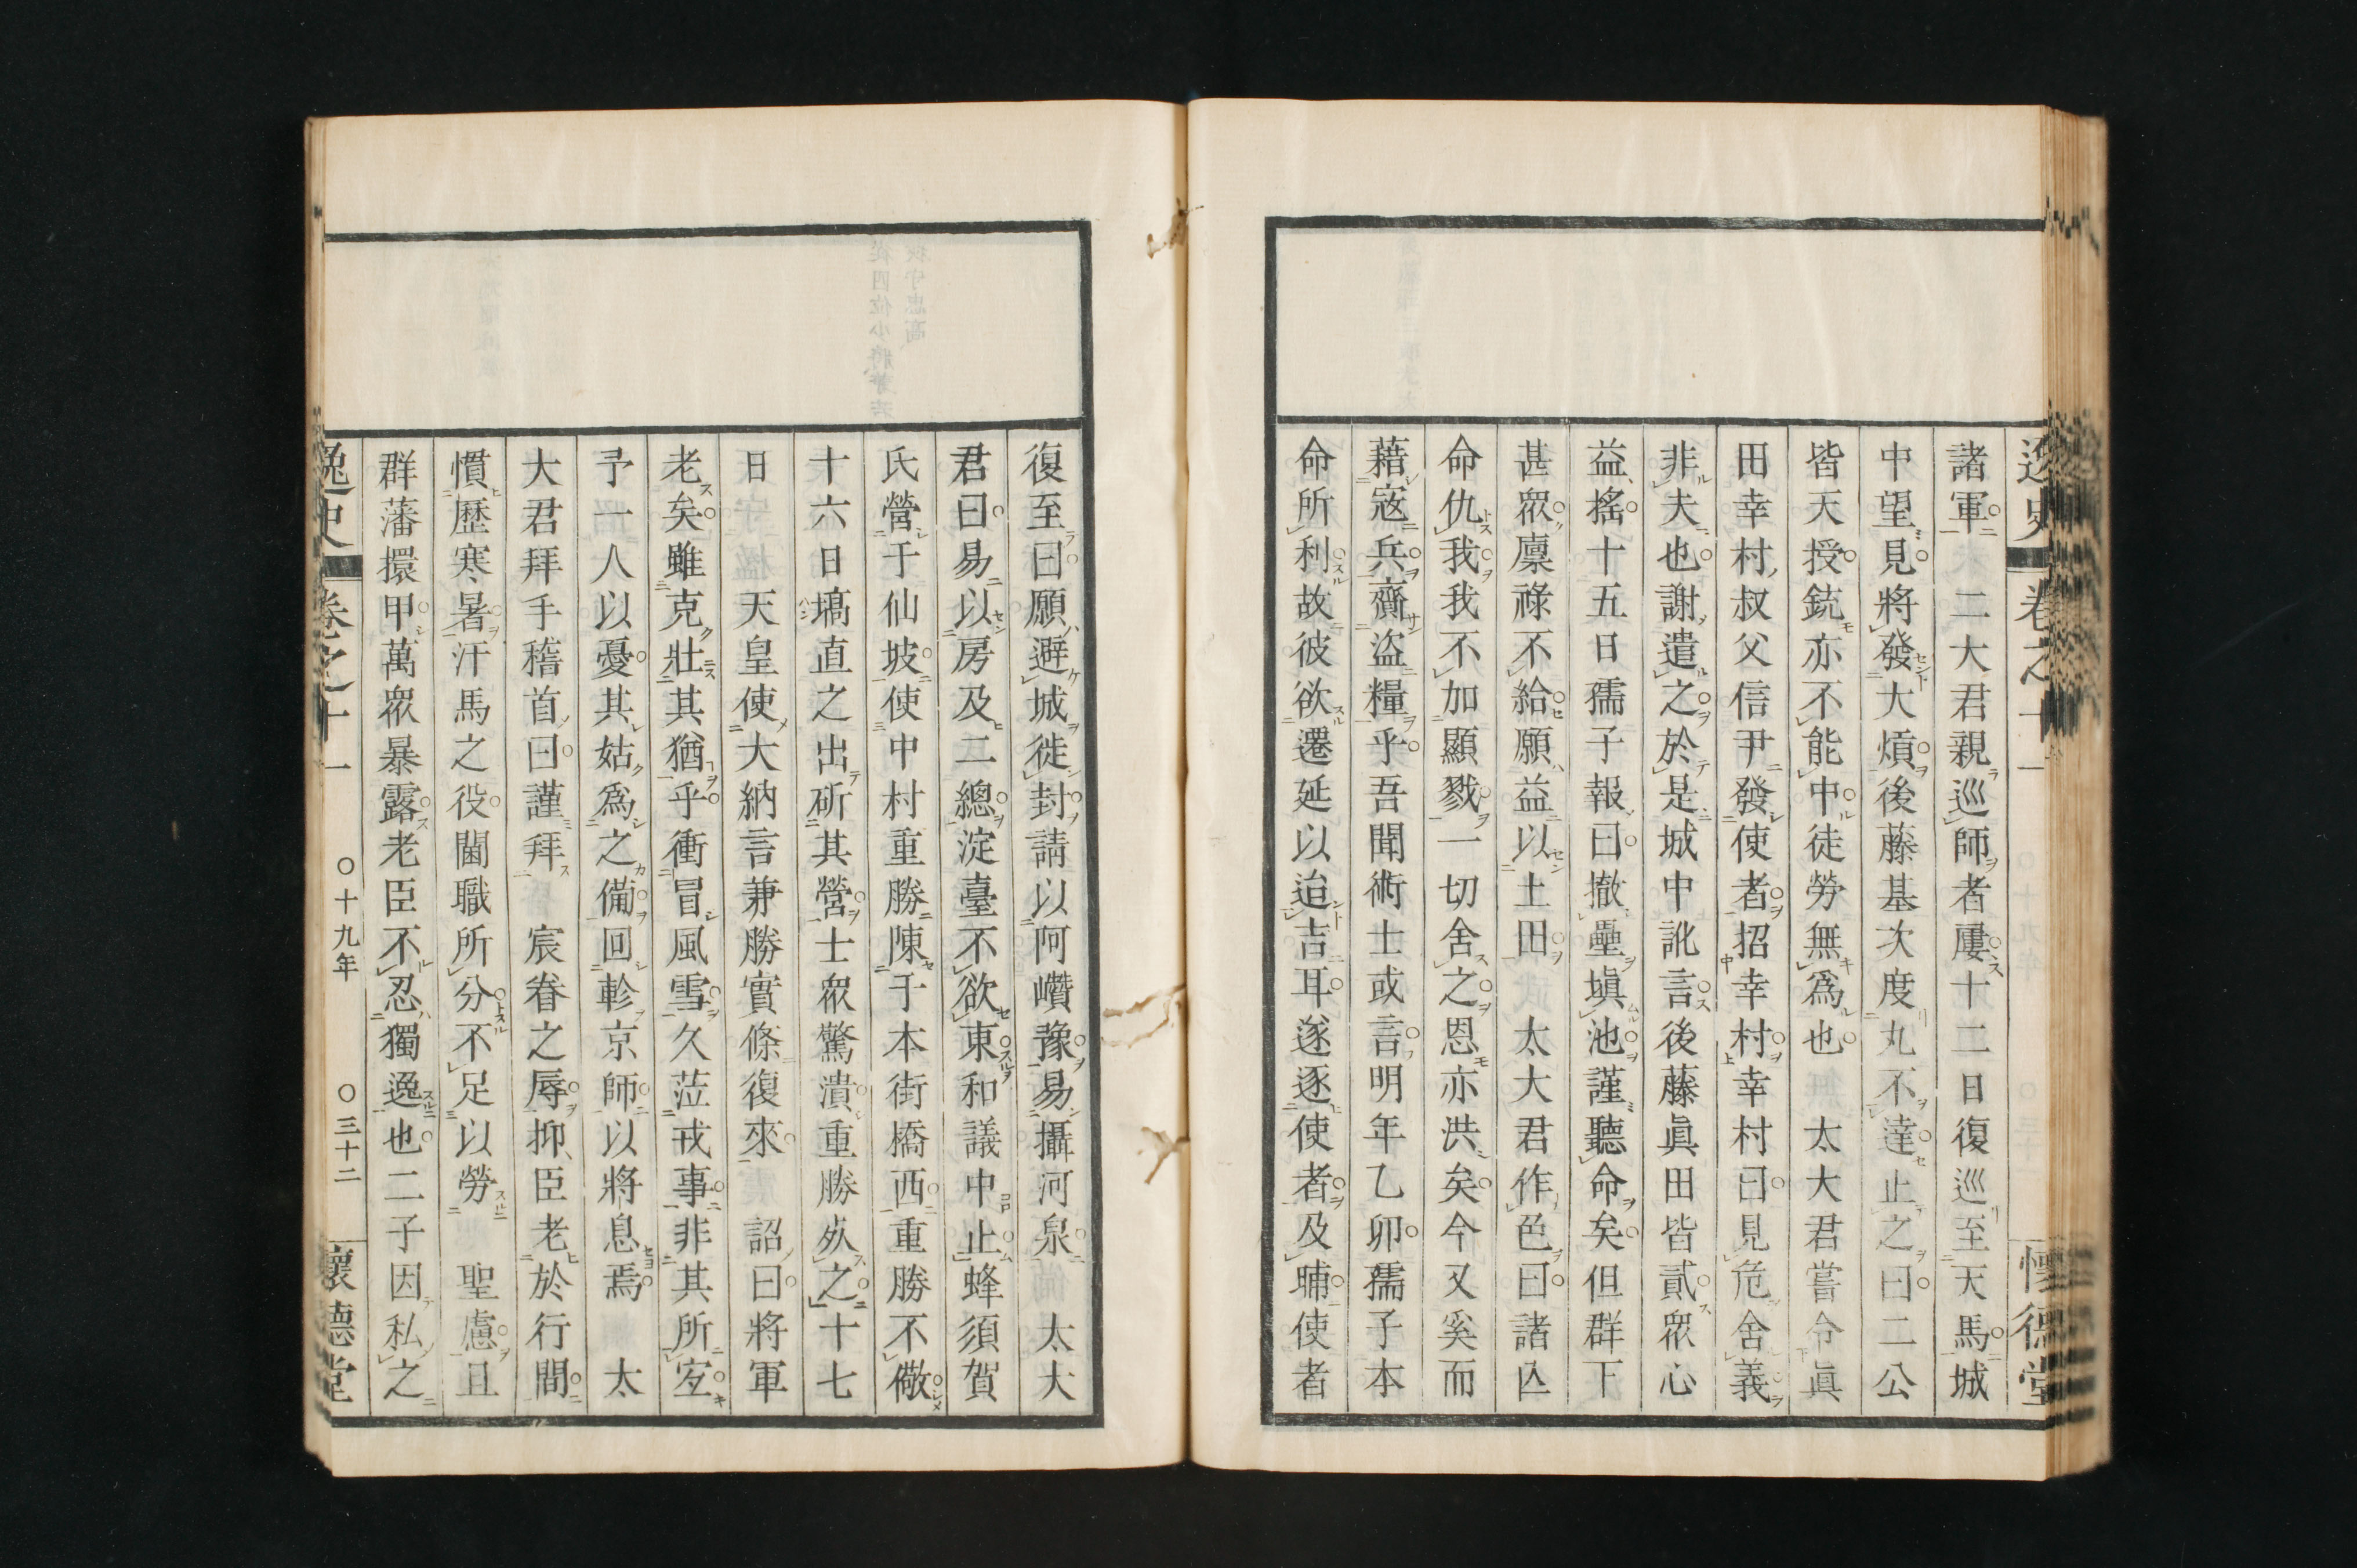 逸史 卷之十一 懷德堂
諸軍 二大君親巡師者屢十二日復巡至天馬城
中望見將發大熕後藤基次度丸不達止之曰二公
皆天授銃亦不能中徒勞無爲也 太大君嘗令眞
田幸村叔父信尹發使者招幸村幸村曰見危舍義
非夫也謝遣之於是城中訛言後藤眞田皆貳衆心
益搖十五日孺子報曰撤壘塡池謹聽命矣但群下
甚衆廪祿不給願益以土田 太大君作色曰諸亾
命仇我我不加顯戮一切舍之恩亦洪矣今又奚而
藉寇兵齎盜糧乎吾聞術士或言明年乙卯孺子本
命所利故彼欲遷延以迨吉耳遂逐使者及晡使者
復至曰願避城徙封請以阿讚豫易攝河泉 太大
君曰易以房及二總淀臺不欲東和議中止蜂須賀
氏營于仙坡使中村重勝陳于本街橋西重勝不儆
十六日塙直之出斫其營士衆驚潰重勝死之十七
日 天皇使大納言兼勝實條復來 詔曰將軍
老矣雖克壯其猶乎衝冒風雪久莅戎事非其所宜
予一人以憂其姑爲之備回軫京師以將息焉 太
大君拜手稽首曰謹拜 宸眷之辱抑臣老於行間
慣歷寒暑汗馬之役閫職所分不足以勞 聖慮且
群藩擐甲萬衆暴露老臣不忍獨逸也二子因私之
逸史 卷之十一 ○十九年 ○三十二 懷德堂